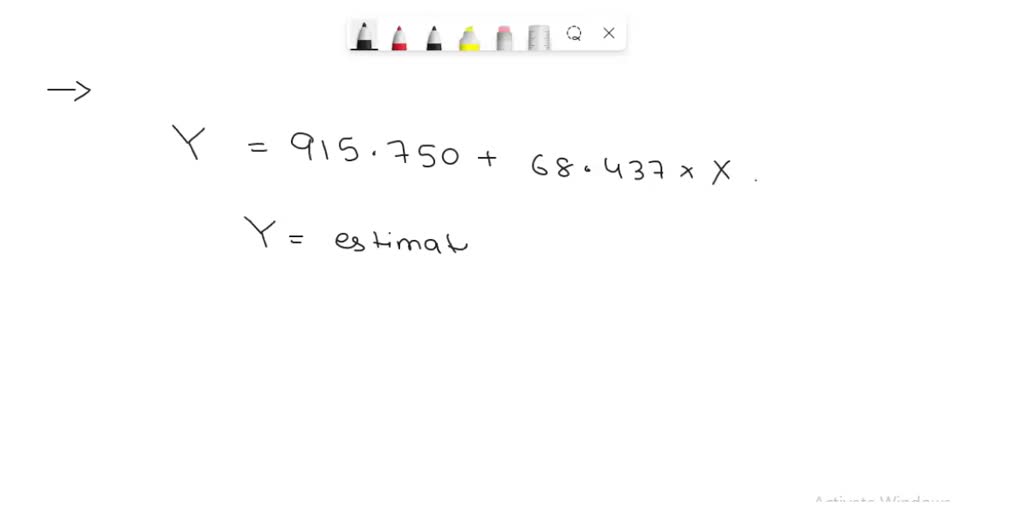 →
Y = 915.750 + 68.437 × X.
Y = estimat
Activate Windows